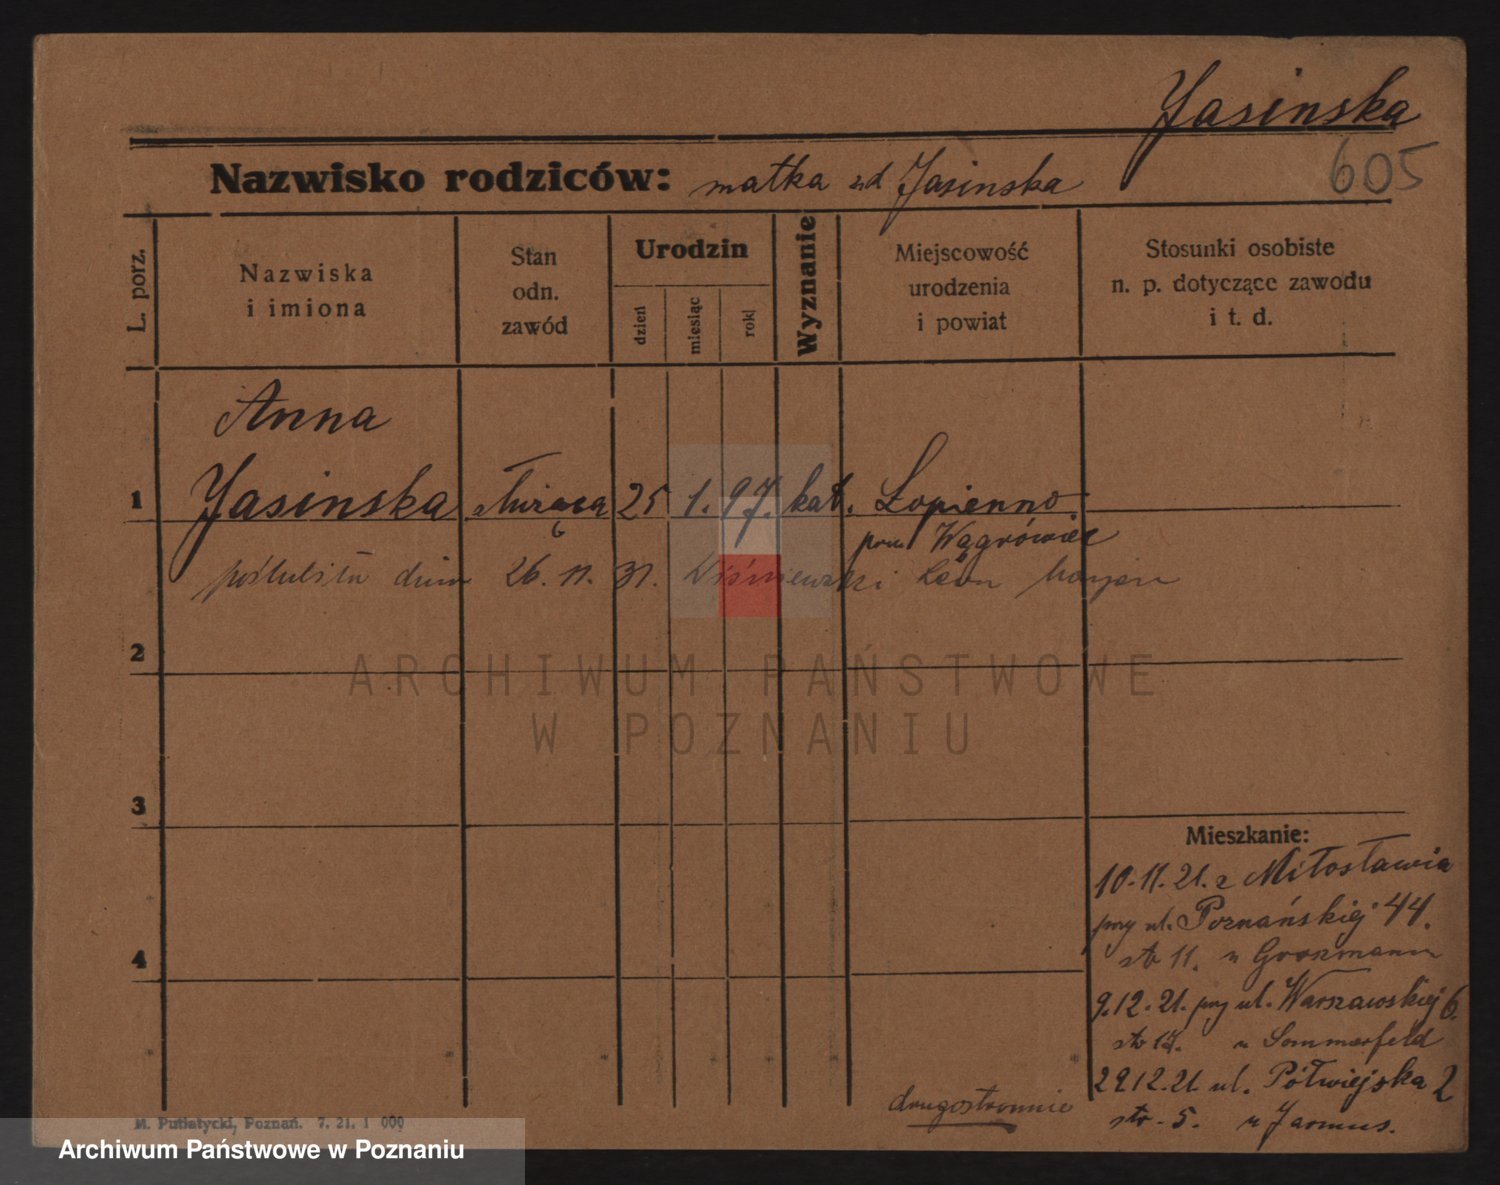 Jasinska
605
Nazwisko rodziców: matka zd Jasinska
L. porz.
Nazwiska
i imiona
Stan
odn.
zawód
Urodzin
dzień
miesiąc
rok
Wyznanie
Miejscowość
urodzenia
i powiat
Stosunki osobiste
n. p. dotyczące zawodu
i t. d.
Anna
1 Jasinska służąca 25 1. 97. kat. Łopienno
pow Wągrówiec
poślubiła dnia 26. 11. 31. Wiśniewski Leon
2
3
4
Mieszkanie:
10.11.21. z Miłosławia
przy ul. Poznańskiej 44.
str 11. u Grossmann
9.12.21. przy ul. Warszawskiej 6.
u Sommerfeld
29.12.21. ul. Półwiejska 2
str. 5. u Jarmus.
drugostronnie
M. Putiatycki, Poznań. 7. 21. 1 000
ARCHIWUM PAŃSTWOWE
W POZNANIU
Archiwum Państwowe w Poznaniu